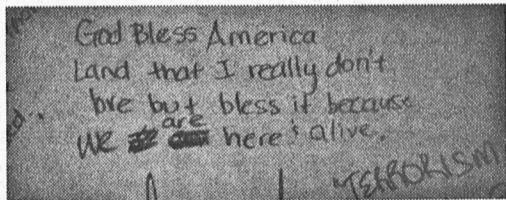 God Bless America
Land that I really don't
love but bless it because
we are here & alive.
TERRORISM